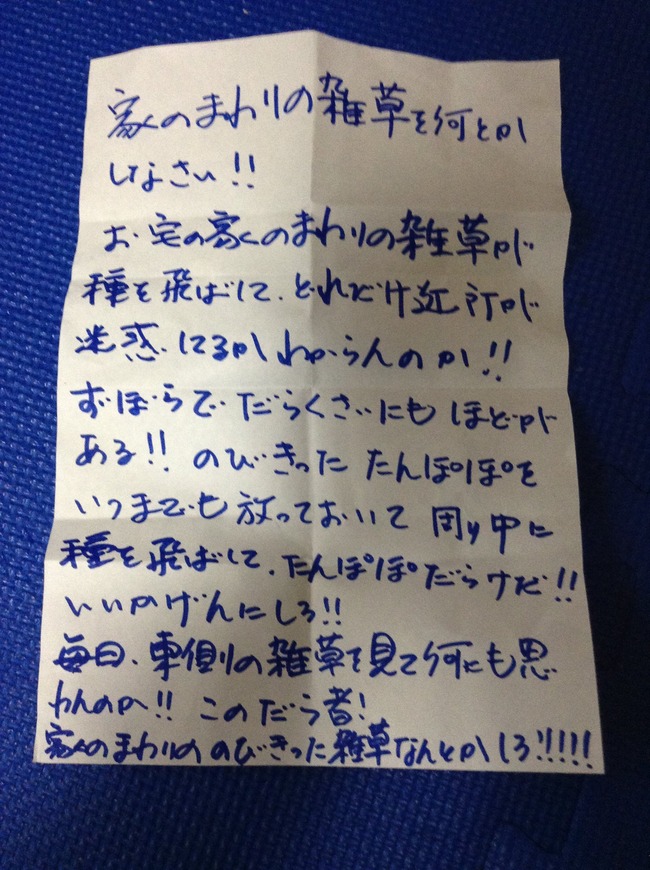 家のまわりの雑草を何とか
しなさい!!
お宅の家のまわりの雑草が
種を飛ばして、どれだけ近所が
迷惑してるかわからんのか!!
ずぼらでだらくさいにもほどが
ある!! のびきったたんぽぽを
いつまでも放っておいて周り中に
種を飛ばして、たんぽぽだらけだ!!
いいかげんにしろ!!
毎日、東側の雑草を見て何にも思
わんのか!! このだら者!
家のまわりののびきった雑草なんとかしろ!!!!!